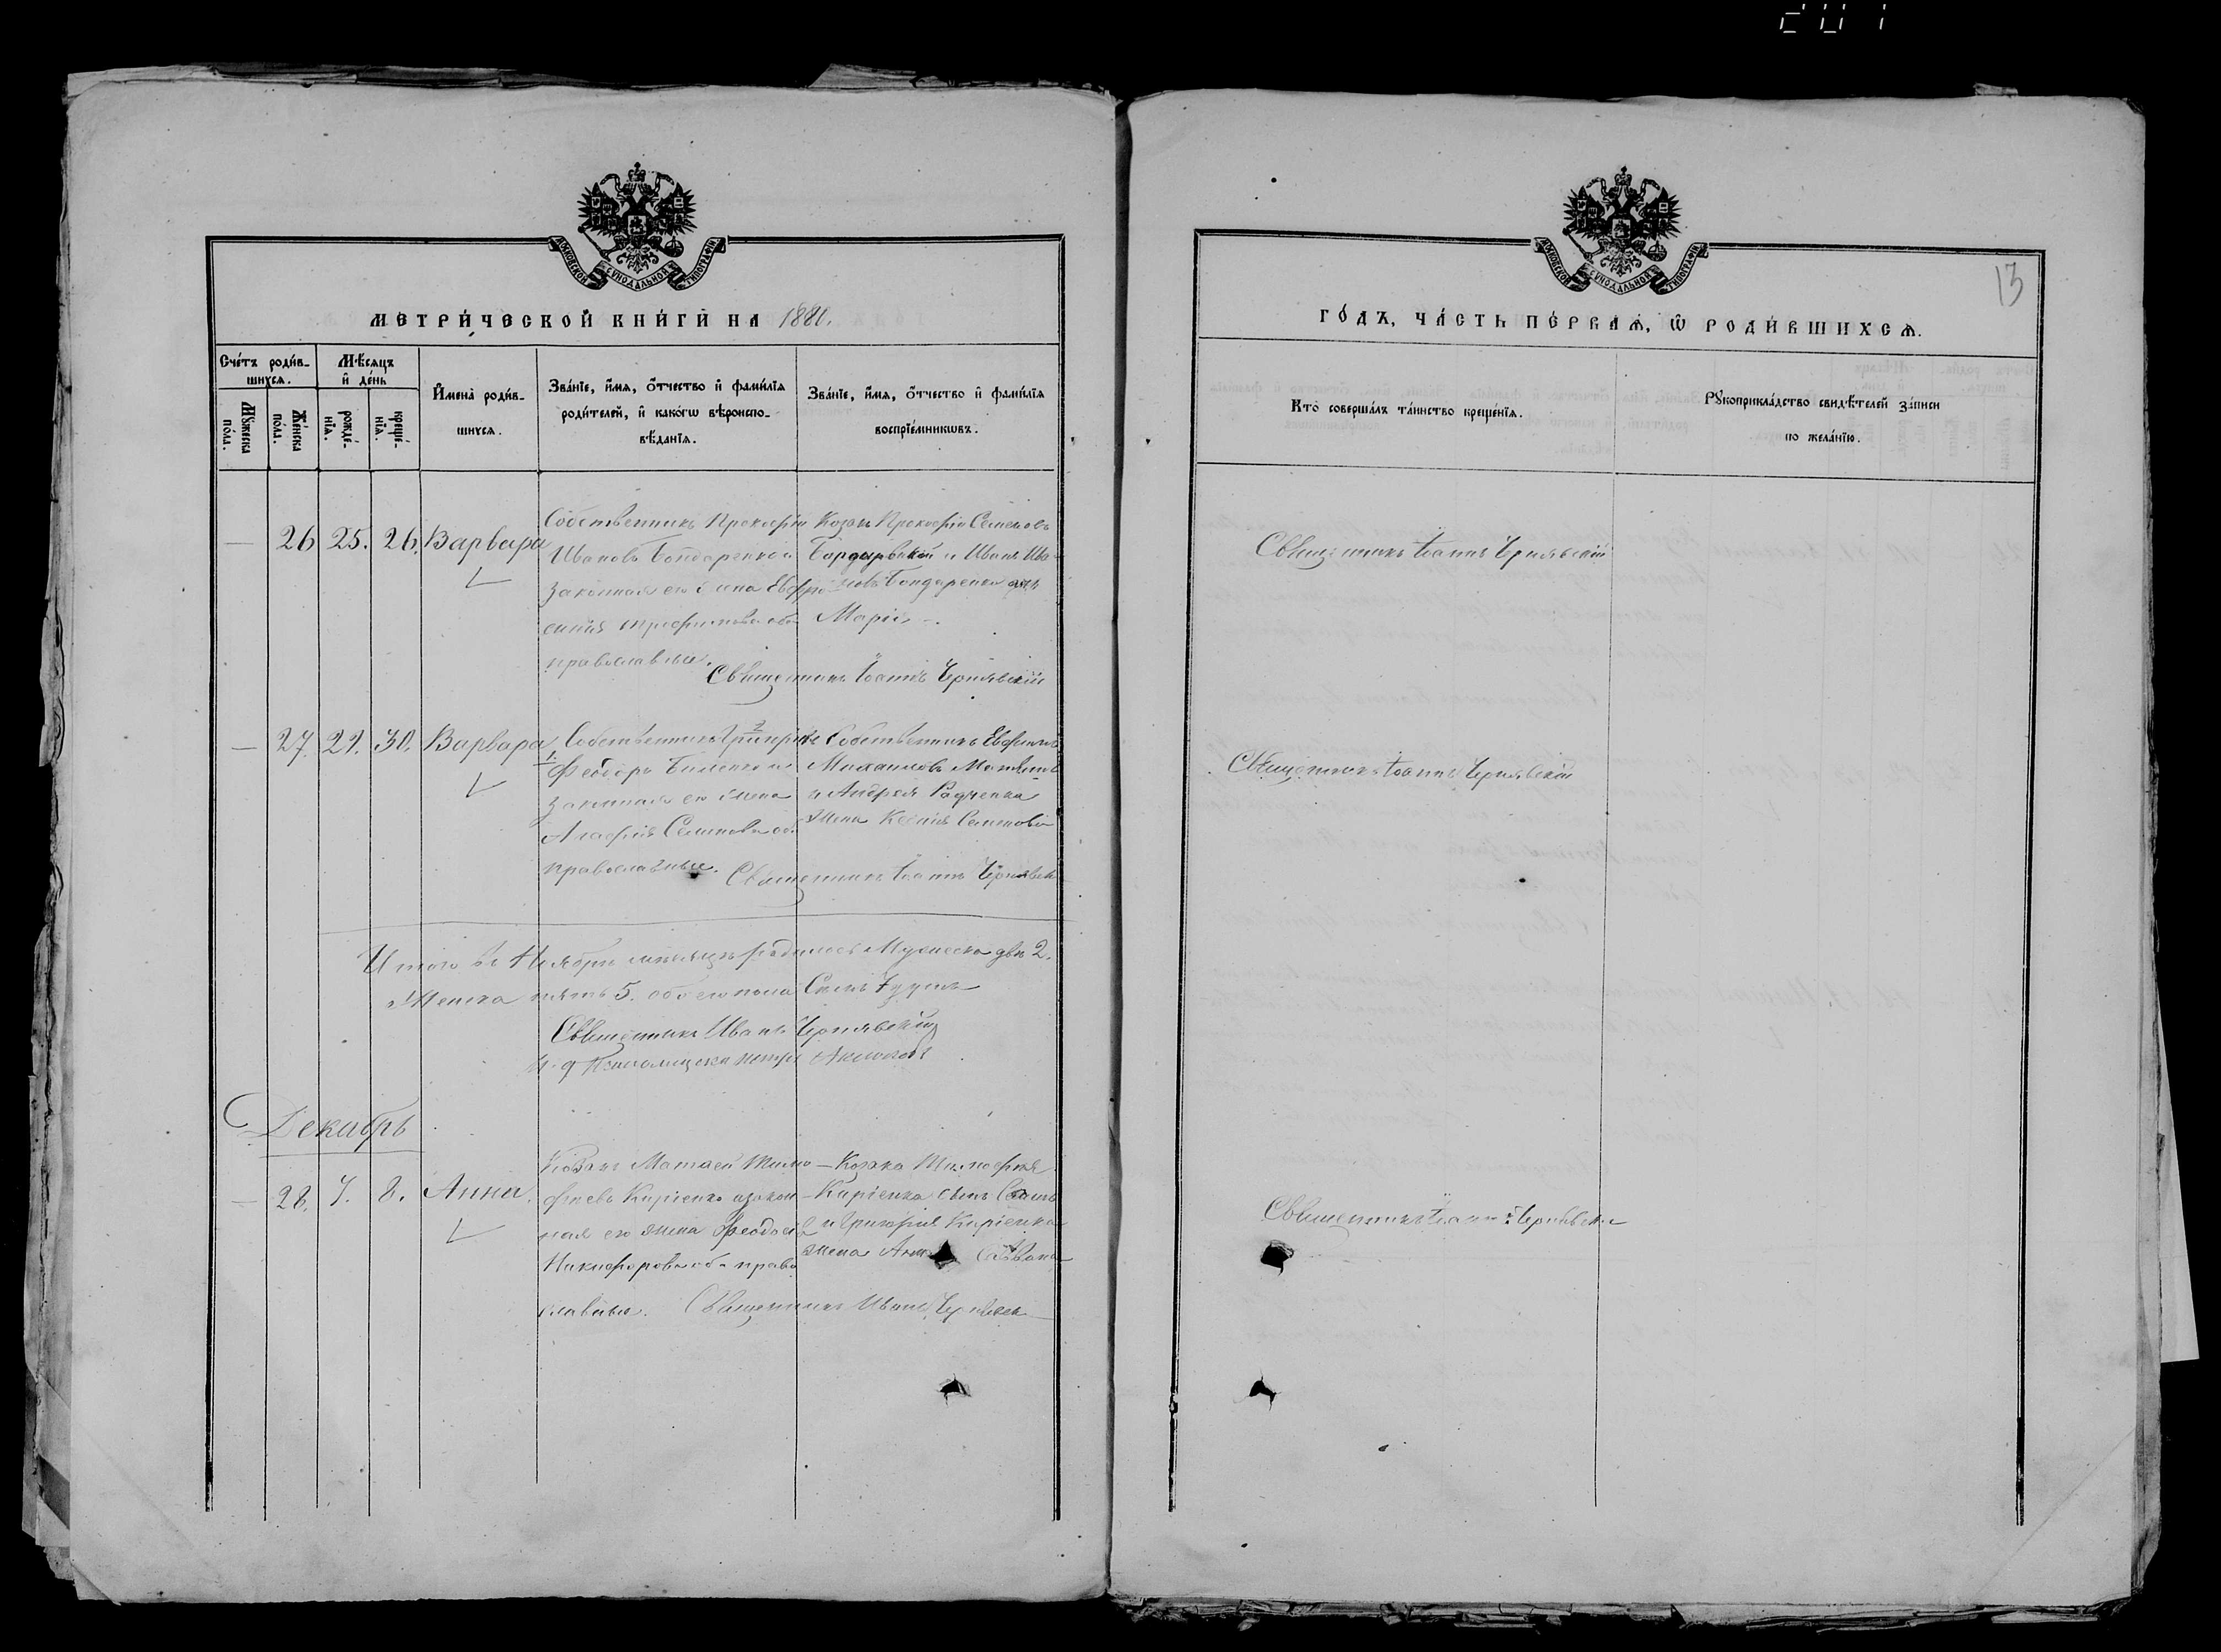 МОСКОВСКОЙ СѴНОДАЛЬНОЙ ТИПОГРАФІИ
МЕТРИ́ЧЕСКОЙ КНИ́ГИ НА 1880.
Сче́тъ роди́в-
шихсѧ.
Мѣ́сѧцъ
и҆ де́нь
Мꙋ́жеска
по́ла.
Же́нска
по́ла.
рожде́-
нїѧ.
креще́-
нїѧ.
И҆мена̀ роди́в-
шихсѧ.
Зва́нїе, и҆́мѧ, ѻ҆́тчество и҆ фами́лїѧ
роди́телей, и҆ како́гѡ вѣроиспо-
вѣ́данїѧ.
Зва́нїе, и҆́мѧ, ѻ҆́тчество и҆ фами́лїѧ
воспрїе́мникѡвъ.
— 26 25. 26. Варвара
Собственникъ Прокофій
Ивановъ Бондаренко и
законная его жена Евфро
синия Трофимова оба
православные.
Козакъ Прокофій Семеновъ
и Иванъ Ива-
новъ Бондаренко
Марія
Священникъ Іоаннъ Чернявскій
— 27. 29. 30. Варвара
Собственникъ Григорій
Феодоръ и
законная его жена
Агафія Семенова оба
православные.
Собственникъ Евфимъ
Михаиловъ
и Андрея Радченка
жена Ксенія Семенова
Священникъ Іоаннъ Чернявск
Итого въ Ноябрѣ мѣсяцѣ родилось Мужеска два 2.
Женска пять 5. обоего пола Семь 7 душъ
Священникъ Иванъ Чернявскій
И. д Псаломщика Петръ
Декабрь
— 28. 7. 8. Анна.
Козакъ Матвей Тимо
феевъ Киріенко и закон
ная его жена Феодосія
Никифорова оба право
славные.
Козака Тимофея
Киріенка сынъ
и Григорія Киріенка
жена
Священникъ Иванъ Чернявск
МОСКОВСКОЙ СѴНОДАЛЬНОЙ ТИПОГРАФІИ
13
ГО́ДЪ, ЧА́СТЬ ПЕ́РВАѦ, Ѡ҆ РОДИ́ВШИХСѦ.
Кто̀ соверша́лъ та́инство креще́нїѧ.
Рꙋкоприкла́дство свидѣ́телей за́писи
по жела́нїю.
Священникъ Іоаннъ Чернявскій
Священникъ Іоаннъ Чернявскій
Священникъ Іоаннъ Чернявскій